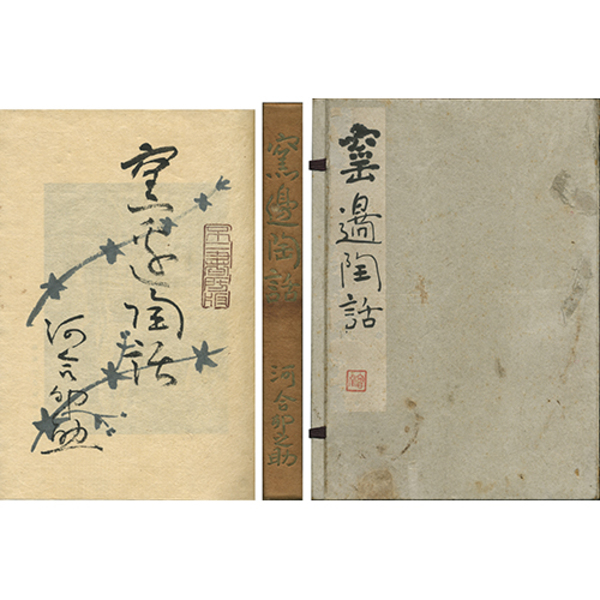 窯邊陶話
河合卯之助
窯邊陶話
河合卯之助
窯邊陶話